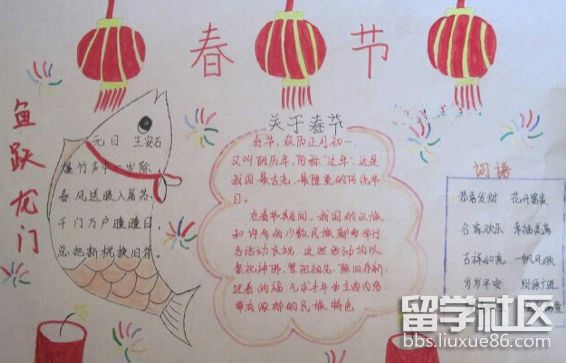 春节
鱼跃龙门
元日 王安石
爆竹声中一岁除,
春风送暖入屠苏,
千门万户瞳瞳日,
总把新桃换旧符。
关于春节
春节,农历正月初一,
又叫阴历年,俗称"过年",这是
我国最古老、最隆重的传统节
日。
在春节期间,我国的汉族
和许多的少数民族都要举行
各活动,这些活动均以
祭祀神佛、祭祀祖先、除旧布新、
丰年为主要内容
带有浓郁的民族特色
词语
恭喜发财 花开富贵
合家欢乐 幸福美满
吉祥如意 一帆风顺
岁岁平安 财源广进
留学社区
bbs.liuxue86.com